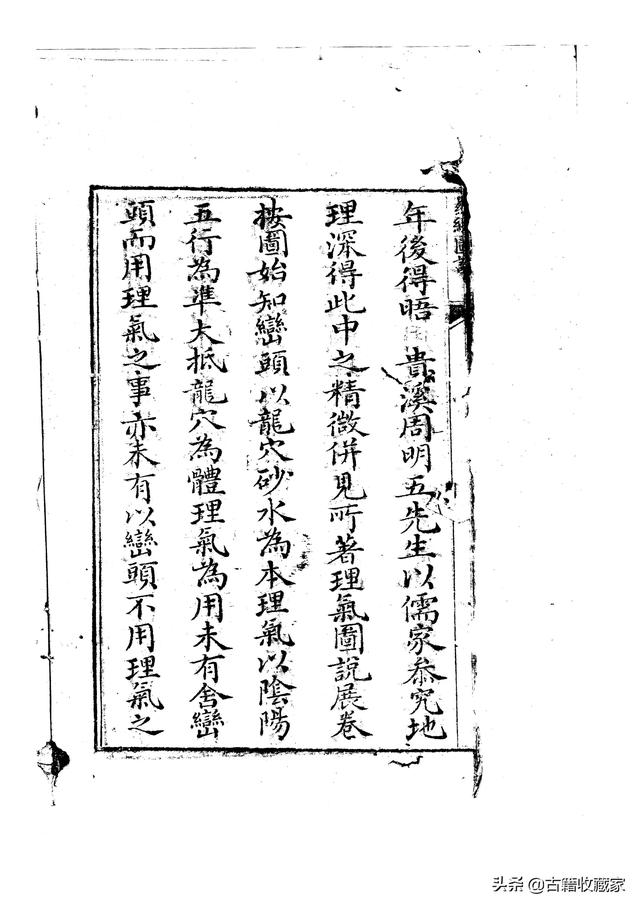 年後得晤 貴溪周明五先生以儒家叅究地
理深得此中之精微併見所著理氣圖說展卷
按圖始知巒頭以龍穴砂水為本理氣以陰陽
五行為準大抵龍穴為體理氣為用未有舍巒
頭而用理氣之事亦未有以巒頭不用理氣之
头条 @古籍收藏家